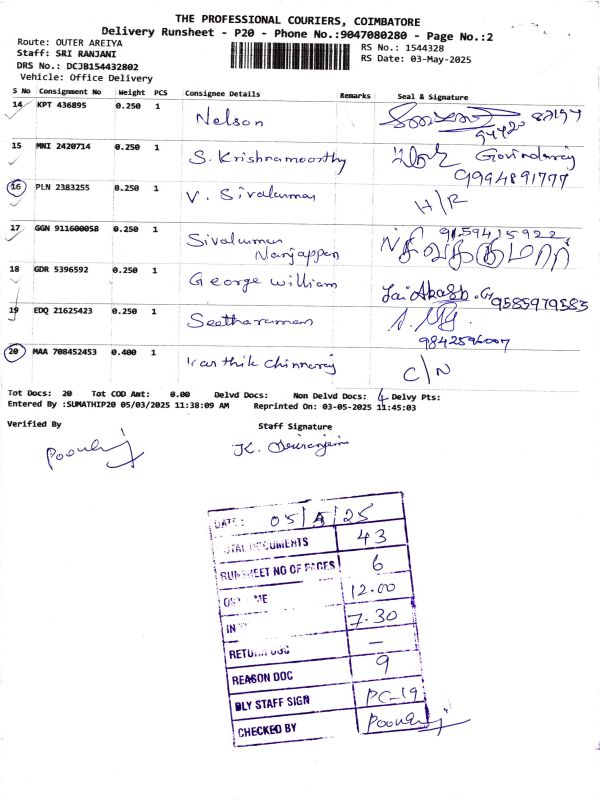 THE PROFESSIONAL COURIERS, COIMBATORE
Delivery Runsheet - P20 - Phone No.:9047080280 - Page No.:2
Route: OUTER AREIYA
RS No.: 1544328
Staff: SRI RANJANI
RS Date: 03-May-2025
DRS No.: DCJB154432802
Vehicle: Office Delivery
S No Consignment No Weight PCS Consignee Details Remarks Seal & Signature
14 KPT 436895 0.250 1 Nelson
15 MNI 2420714 0.250 1 S. Krishnamoorthy Govindaraj
9994891777
16 PLN 2383255 0.250 1 V. Sivakumar H/R
17 GGN 911600058 0.250 1 Sivakumar Nanjappan 9159415922
N சிவக்குமார்
18 GDR 5396592 0.250 1 George william Jai Akash .G 9585979583
19 EDQ 21625423 0.250 1 Seetharaman
9842596007
20 MAA 708452453 0.400 1 Karthik Chinneraj C/N
Tot Docs: 20 Tot COD Amt: 0.00 Delvd Docs: Non Delvd Docs: 4 Delvy Pts:
Entered By :SUMATHIP20 05/03/2025 11:38:09 AM Reprinted On: 03-05-2025 11:45:03
Verified By Staff Signature
DATE: 05/5/25
TOTAL DOCUMENTS 43
RUNSHEET NO OF PAGES 6
12.00
IN 7.30
RETURN DOC —
REASON DOC 9
DLY STAFF SIGN PC-19
CHECKED BY